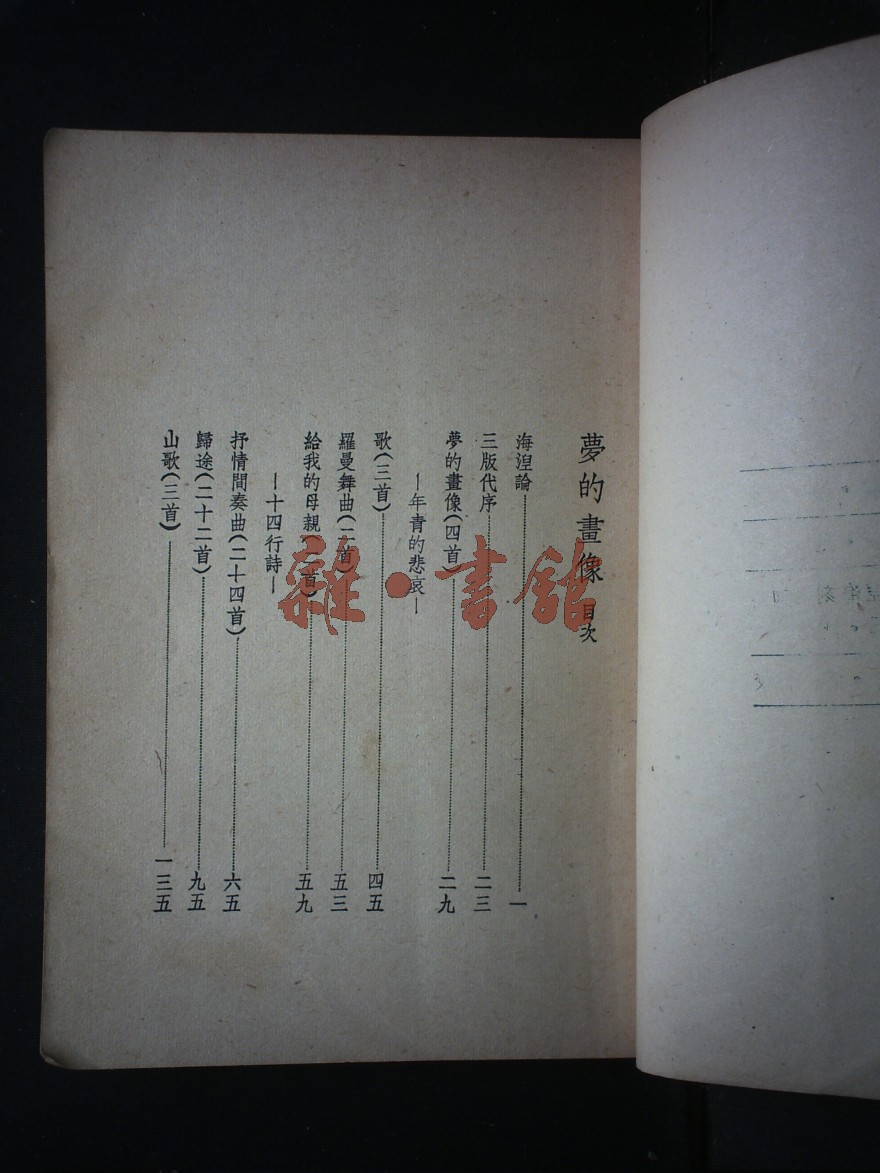 夢的畫像 目次
海涅論 一
三版代序 二三
夢的畫像(四首) 二九
—年青的悲哀—
歌(三首) 四五
羅曼舞曲(二首) 五三
給我的母親(二首) 五九
—十四行詩—
抒情間奏曲(二十四首) 六五
歸途(二十二首) 九五
山歌(三首) 一三五
雜·書館